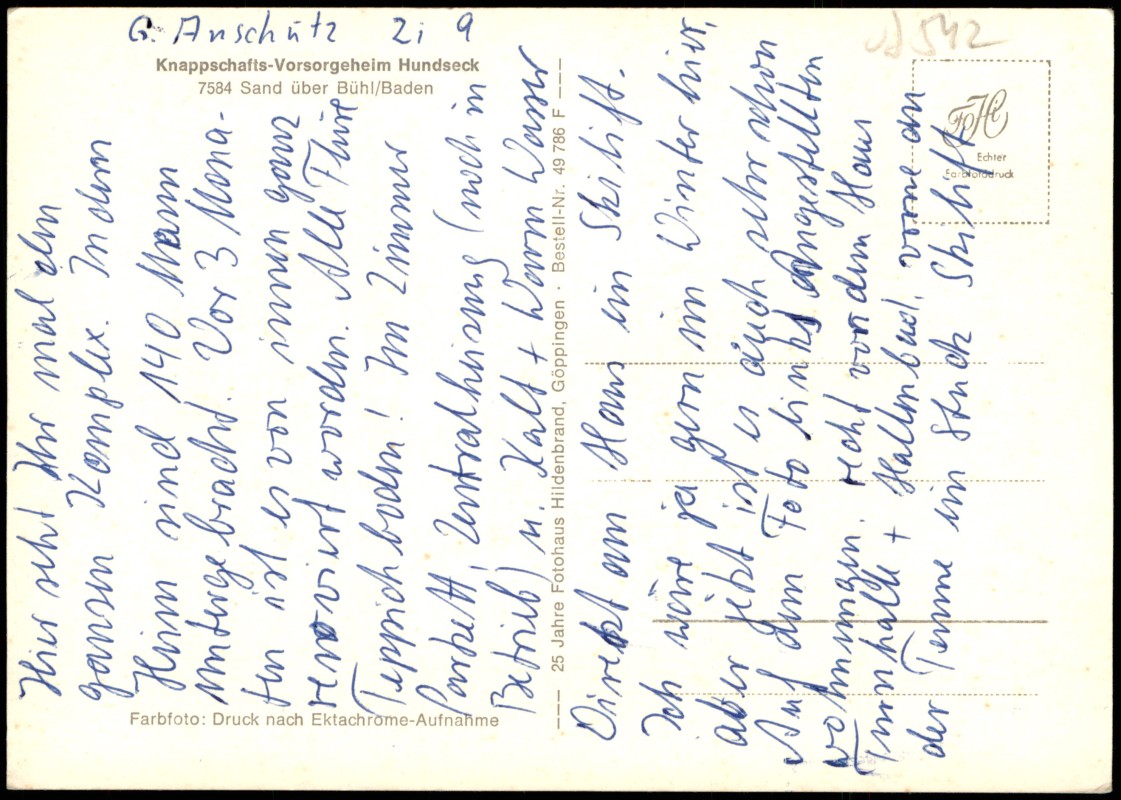 G. Anschütz Zi 9
Knappschafts-Vorsorgeheim Hundseck
7584 Sand über Bühl/Baden
Hier seht Ihr mal den
ganzen Komplex. In dem
Heim sind 140 Mann
untergebracht. Vor 3 Mona-
ten ist es von innen ganz
renoviert worden. Alle Flure
Teppichboden! Im Zimmer
Parkett, Zentralheizung (noch in
Betrieb) u. Kalt + Warm Wasser
Farbfoto: Druck nach Ektachrome-Aufnahme
25 Jahre Fotohaus Hildenbrand, Göppingen · Bestell-Nr. 49 786 F
A 542
FoHi
Echter
Farbfotodruck
Direkt am Haus ein Skilift.
Ich wäre ja gern im Winter hier,
aber jetzt ist es auch sehr schon
Auf dem Foto links Angestellten
wohnungen. recht vor dem Haus
Turnhalle + Hallenbad, vorne an
der Tenne ein Stück Skilift